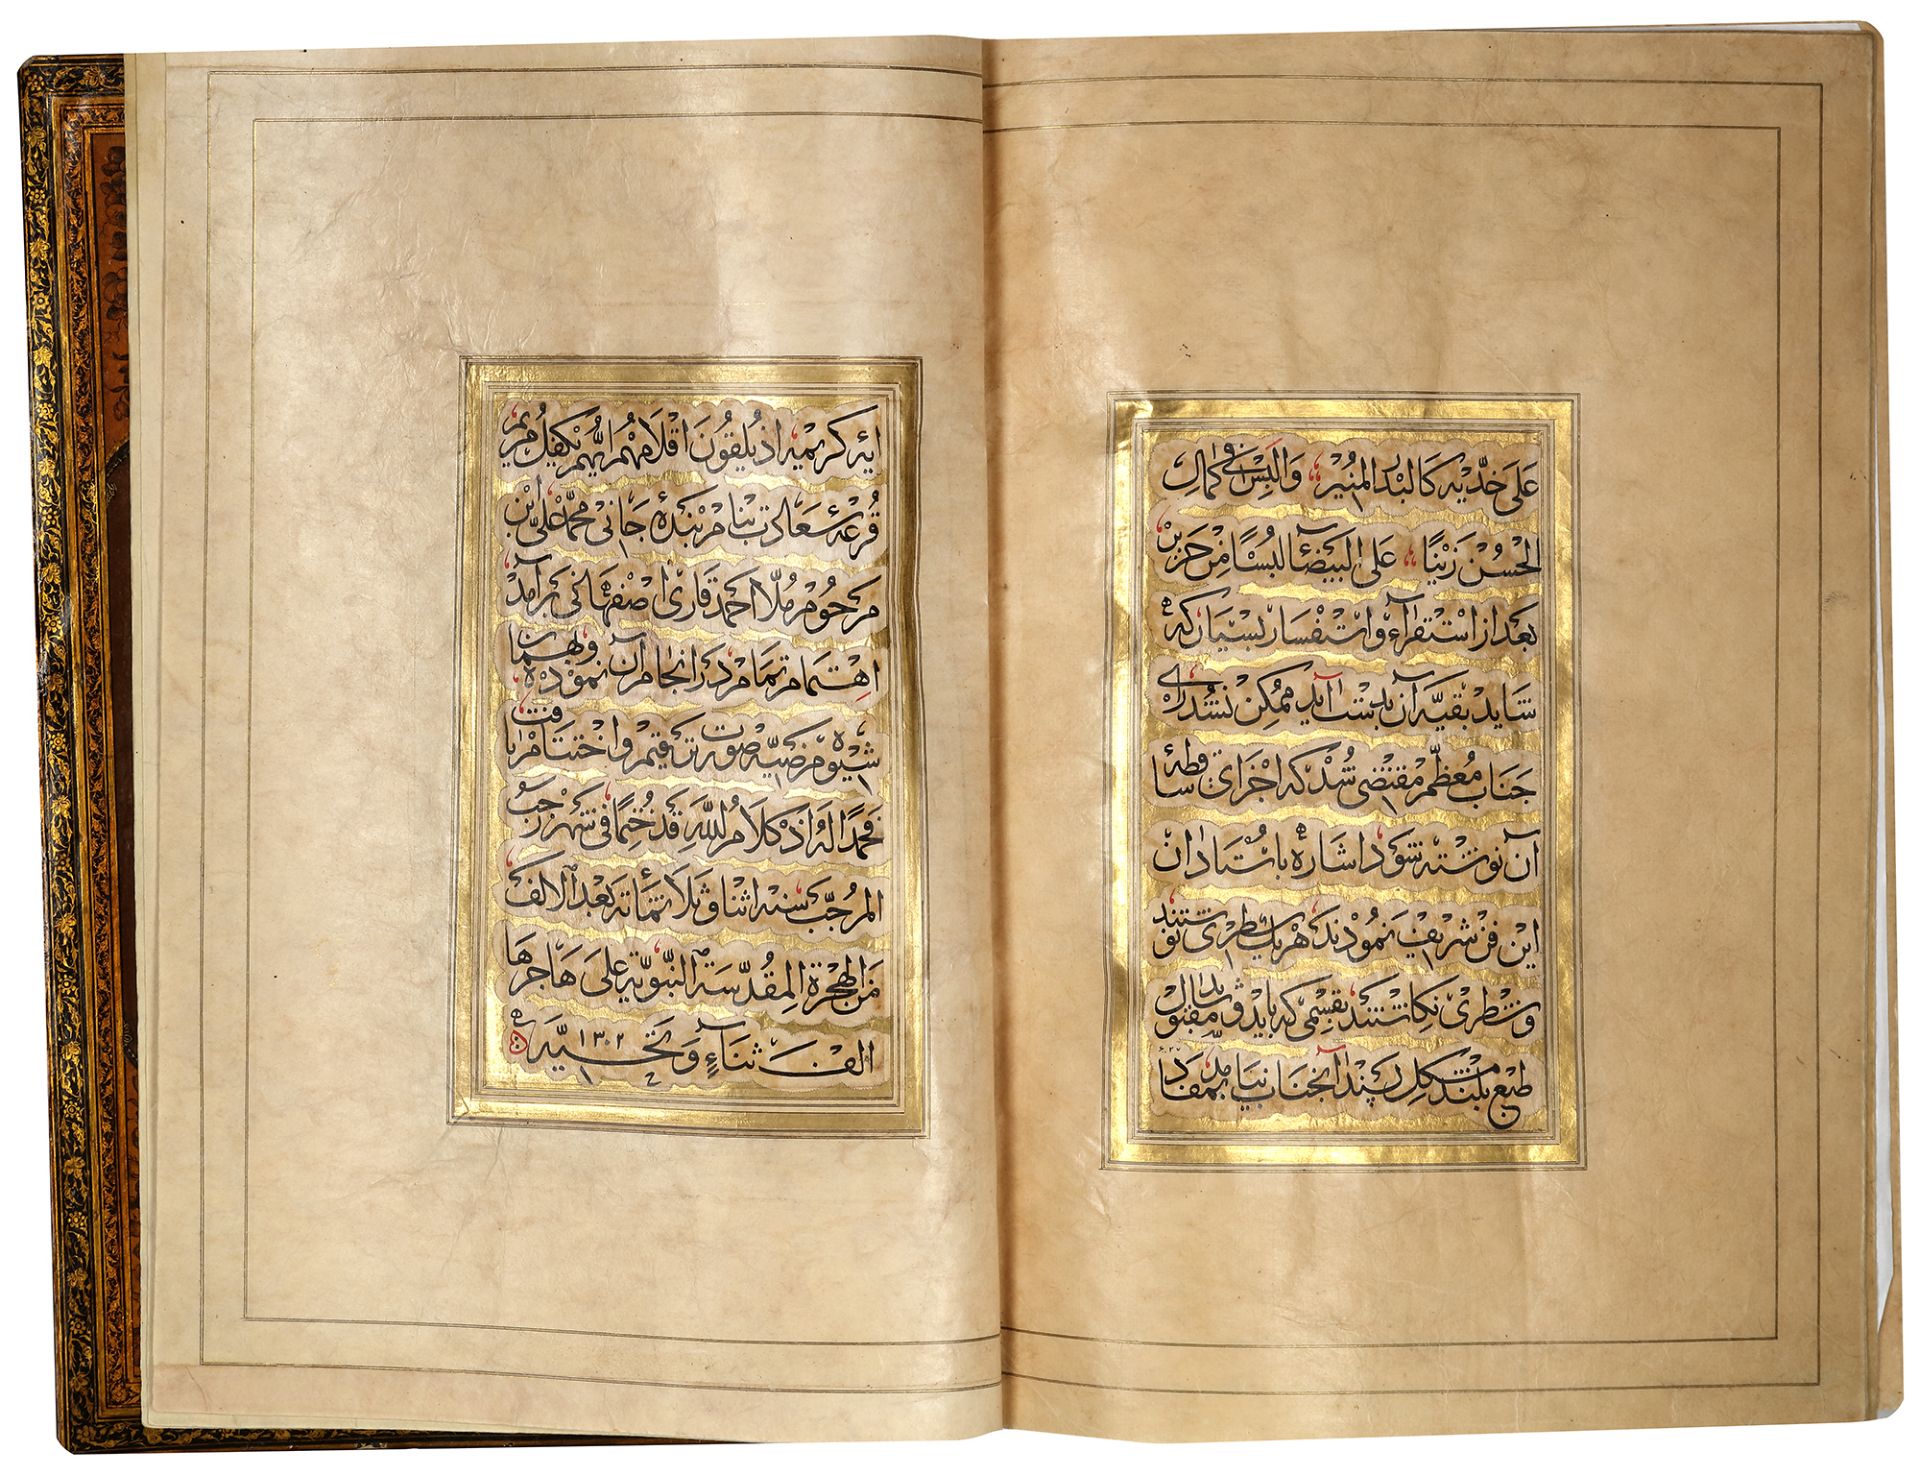 عَلَی خَدَّیهِ کَالبَدرِ المُنیرِ وَالبِس فی کَمالِ
الحُسْنِ زَیْنًا عَلَی البَیضَآءِ لبُسًا مِن حَزِین
بَعدَ از اسْتِقرآء و اسْتِفْسار بسْیار که
شاید بقیّه آن بدست آید ممکِن نشُد رای
جَناب مُعظّم مُقتضی شُد که اجْزای ساقطهٔ
آن نوشته شود اشاره باُسْتادان
این فن شریف نمودند که هر یک شطری نوشتند
و شطری نکاشتند بقسمی که باید و شاید مقبول
طبع بلند مشکل پسند آنجناب نیامد بمفاد
ایه کریمه اذ یُلقُونَ اقْلامَهُم ایُّهُم یَکفُلُ مَریَم
قُرعهٔ سَعادت بنام بَندهٔ جانی محمّد علی ابْن
مَرحُوم مُلّا احمَد قاری اصْفَهانی بَر آمَد
اهتمام تمام دَر انجام آن نموده و بهمان
شیوهٔ مَرضیّه صورت ترقیم و اختتام یافت
فَحَمدًا لَهُ اذ کَلامُ اللهِ قَد خُتِمَا فی شَهر رَجَب
المُرجَّب سنه اثنا و ثَلاثمائه بَعْد الالف
مَن الهِجرَة المقدّسَة النبَویّة علیَ هاجرها
الف ثناءٍ و تَحیّه ۱۳۰۲